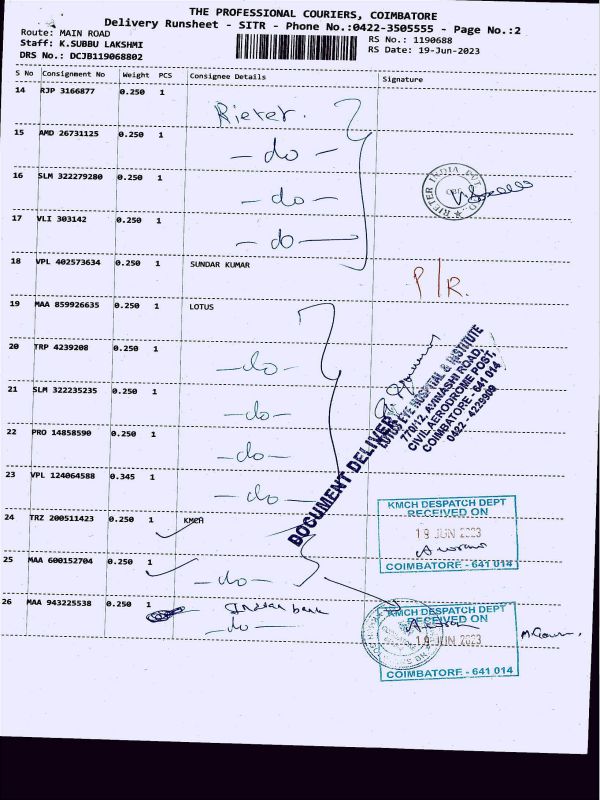 THE PROFESSIONAL COURIERS, COIMBATORE
Delivery Runsheet - SITR - Phone No.:0422-3505555 - Page No.:2
Route: MAIN ROAD
Staff: K.SUBBU LAKSHMI
DRS No.: DCJB119068802
RS No.: 1190688
RS Date: 19-Jun-2023
S No Consignment No Weight PCS Consignee Details Signature
14 RJP 3166877 0.250 1 Rieter.
15 AMD 26731125 0.250 1 - do -
16 SLM 322279280 0.250 1 - do -
RIETER INDIA PVT
17 VLI 303142 0.250 1 - do -
18 VPL 402573634 0.250 1 SUNDAR KUMAR P/R.
19 MAA 859926635 0.250 1 LOTUS
20 TRP 4239208 0.250 1 - do -
21 SLM 322235235 0.250 1 - do -
22 PRO 14858590 0.250 1 - do -
23 VPL 124064588 0.345 1 - do -
DOCUMENT DELIVER
LOTUS EYE HOSPITAL & INSTITUTE
770/12, AVINASHI ROAD,
CIVIL AERODROME POST,
COIMBATORE - 641 014
0422 - 4229909
24 TRZ 200511423 0.250 1 KMCH
KMCH DESPATCH DEPT
RECEIVED ON
19 JUN 2023
COIMBATORE - 641 014
25 MAA 600152704 0.250 1 - do -
26 MAA 943225538 0.250 1 Indian bank
- do -
KMCH DESPATCH DEPT
RECEIVED ON
19 JUN 2023
COIMBATORE - 641 014